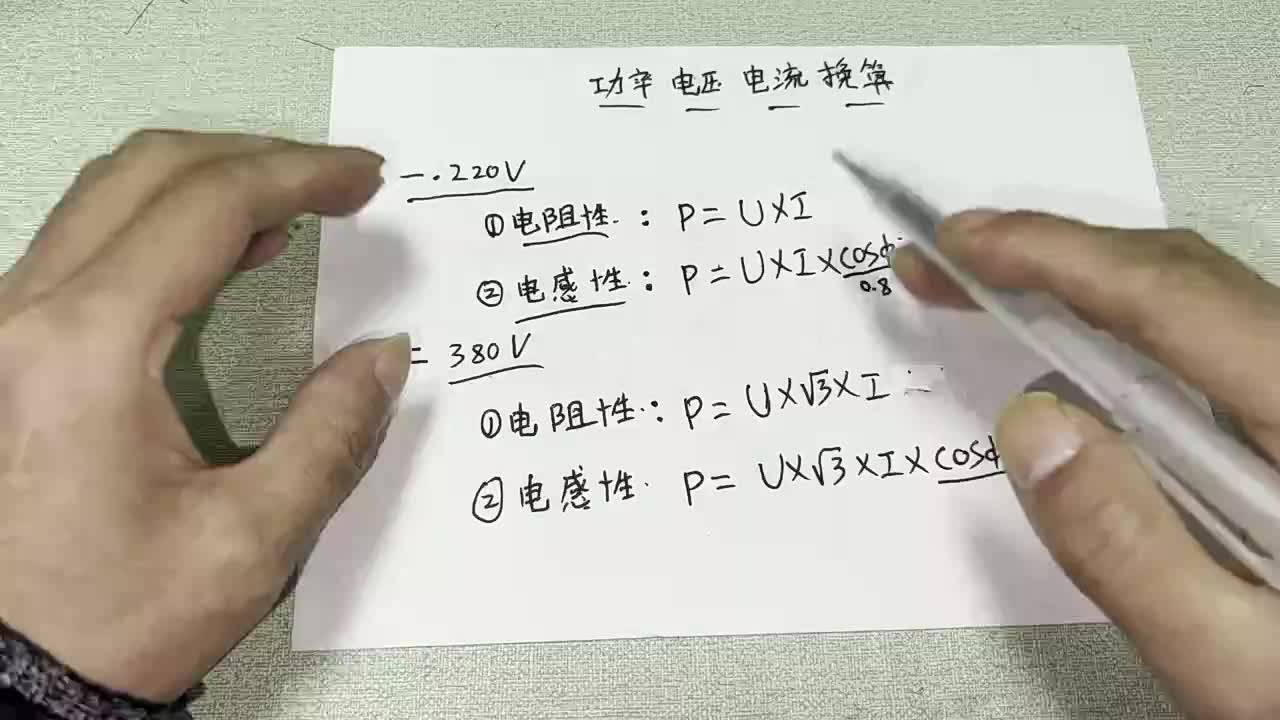 功率 电压 电流 换算
一.220V
①电阻性:P=U×I
②电感性:P=U×I×cosφ
0.8
二 380V
①电阻性:P=U×√3×I
②电感性. P=U×√3×I×cosφ